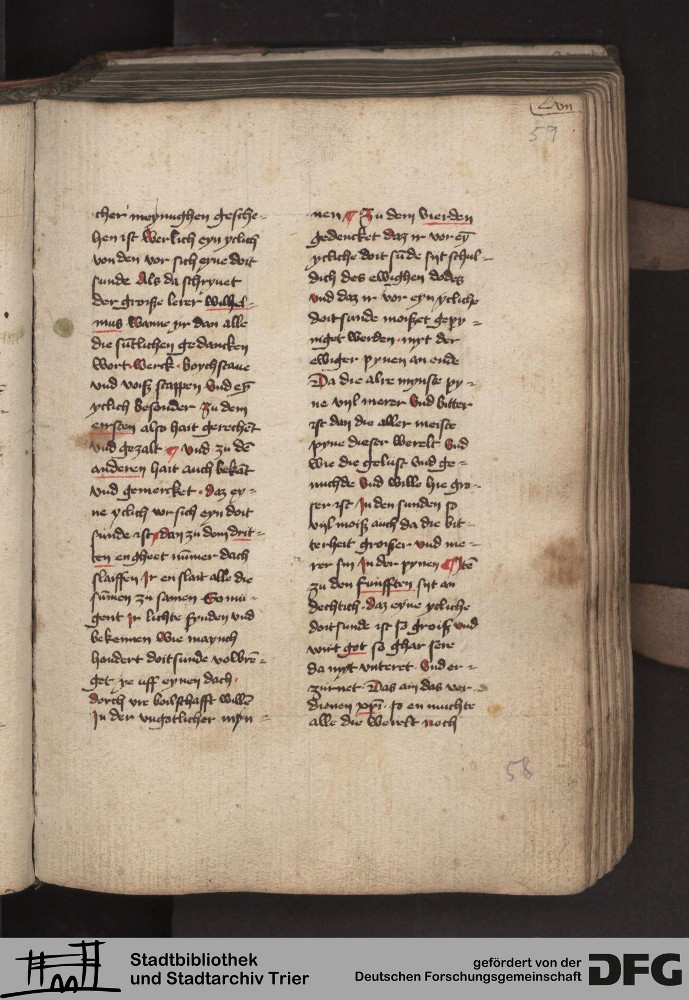 Lvii
59
cher meynughen gesche-
hen ist Werlich eyn yclich
von den vor sich eyne doit
sunde Als da schryuet
der groiße lerer wilhel-
mus Wanne jr dan alle
die sutlichen gedancken
Wort Werck boychstaue
vnd voiß stappen Vnd ey̅
yclich besonder Zu dem
ersten also hait gerechet
vnd gezalt ¶ vnd zu de̅
anderen hait auch bekat
vnd gemercket. daz ey-
ne yclich vor sich eyn doit
sunde ist dan zu dem drit-
ten en gheet nu̅mer dach
slaiffen Ir en slait alle die
su̅men zu samen So mu-
gent jr lichte fynden vnd
bekennen Wie manych
hondert doit sunde volbre̅-
get ye uff eynen dach.
dorch vre boilschafft will
In der vngotlicher myn-
nen ¶ Zu dem vierden
gedencket daz ir vor ey̅
ycliche doit su̅de syt schul-
dich des ewighen dodes
vnd daz ir vor eyn ycliche
doit sunde moißet gepy-
niget werden. myt der
ewiger pynen an ende
Da die alre mynste py-
ne vyl merer Vnd bitter
ist dan die aller meiste
pyne dieser Werelt Vnd
Wie die gelust Vnd ge-
nuchde Vnd Wille hie gro-
ser ist In den sunden so
vyl moiß auch da die bit-
terheit groißer vnd me-
rer sin In der pynen ¶ Ite̅
zu den funfften. syt an
dechtich. daz eyne ycliche
doit sunde ist so groiß vnd
wirt got so ghar sere
da myt vnteret. Vnd er-
zurnet. Das an das ver-
dienen xpi̅. so en muchte
alle die Werelt noch
58
Stadtbibliothek
und Stadtarchiv Trier
gefördert von der
Deutschen Forschungsgemeinschaft
DFG